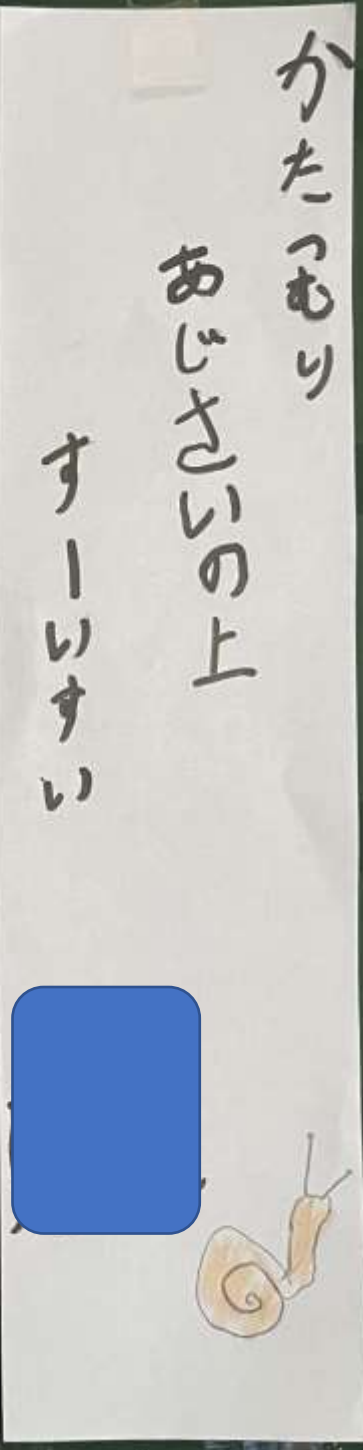 かたつむり
あじさいの上
すーいすい